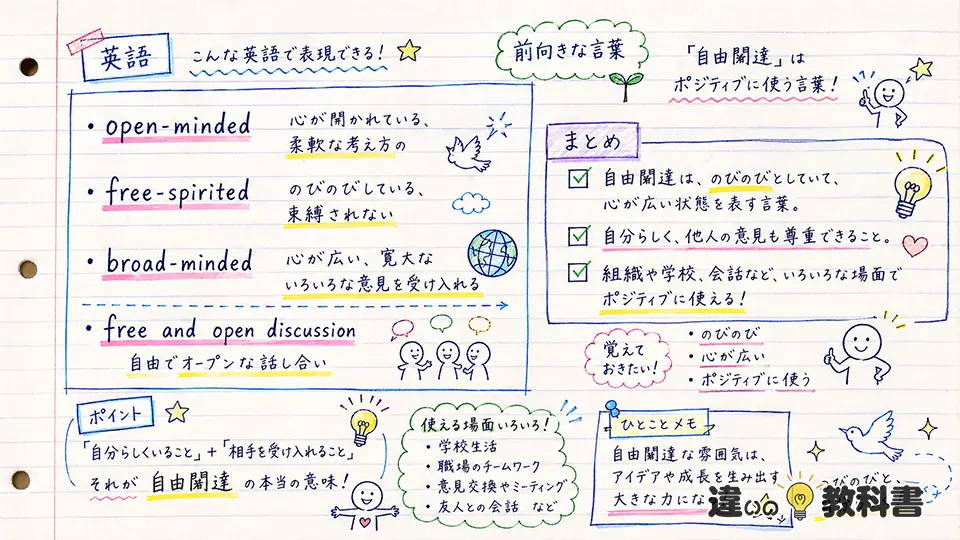 英語
こんな英語で表現できる！
・open-minded
心が開かれている、
柔軟な考え方の
・free-spirited
のびのびしている、
束縛されない
・broad-minded
心が広い、寛大な
いろいろな意見を受け入れる
・free and open discussion
自由でオープンな話し合い
前向きな言葉
「自由闊達」は
ポジティブに使う言葉！
まとめ
自由闊達は、のびのびとしていて、
心が広い状態を表す言葉。
自分らしく、他人の意見も尊重できること。
組織や学校、会話など、いろいろな場面で
ポジティブに使える！
覚えて
おきたい！
・のびのび
・心が広い
・ポジティブに使う
ポイント
「自分らしくいること」+「相手を受け入れること」
それが 自由闊達 の本当の意味！
使える場面いろいろ！
・学校生活
・職場のチームワーク
・意見交換やミーティング
・友人との会話 など
ひとことメモ
自由闊達な雰囲気は、
アイデアや成長を生み出す
大きな力にな
のびのびと、
違いの教科書